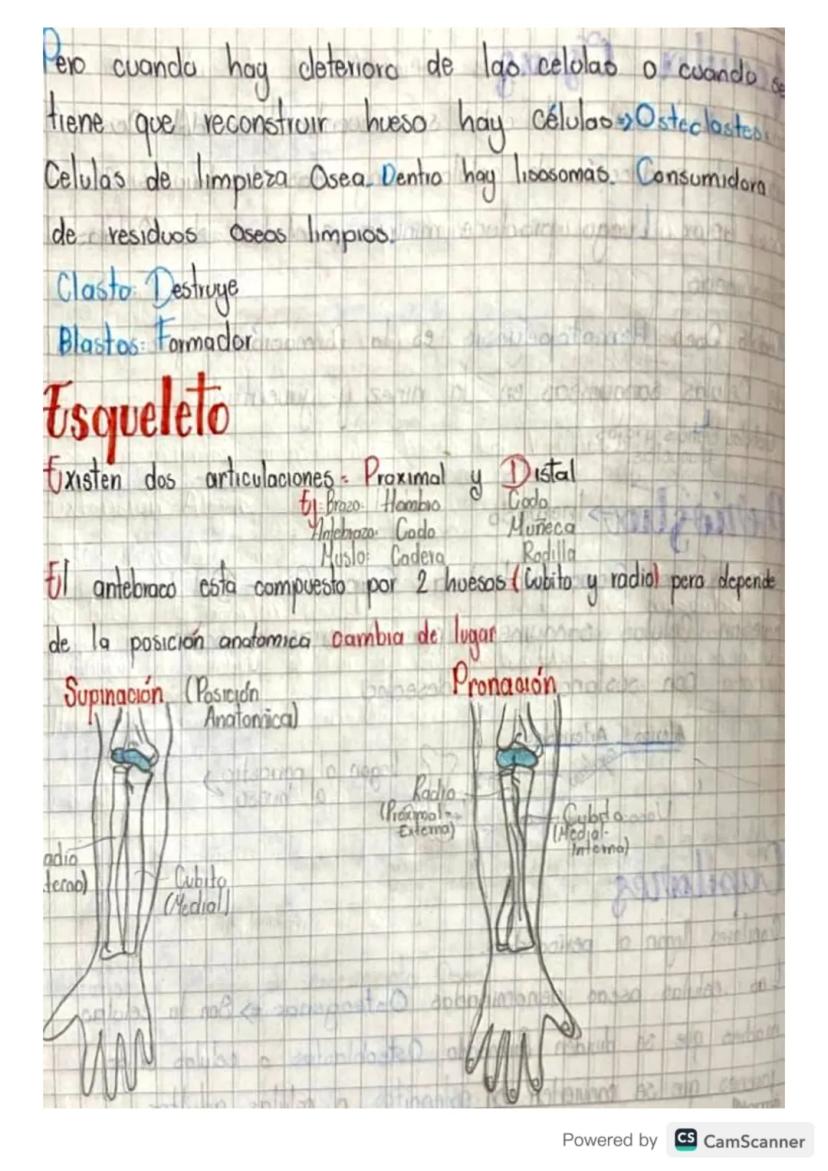 Pero cuando hay deterioro de las celulas o cuando se
tiene que reconstruir hueso hay células → Osteclastos.
Celulas de limpieza Osea. Dentro hay lisosomas. Consumidora
de residuos oseos limpios.
Clasto: Destruye
Blastos: Formador
Esqueleto
Existen dos articulaciones = Proximal y Distal
Ej: Brazo: Hombro Codo
Antebrazo: Codo Muñeca
Muslo: Cadera Rodilla
El antebraco esta compuesto por 2 huesos (Cubito y radio) pero depende
de la posición anatomica cambia de lugar
Supinación (Posición Anatomica)
Pronación
adio
terno)
Cubito
(Medial)
Radio
(Proximal-
Externa)
Cubito
(Medial-
Interna)
Powered by CS CamScanner